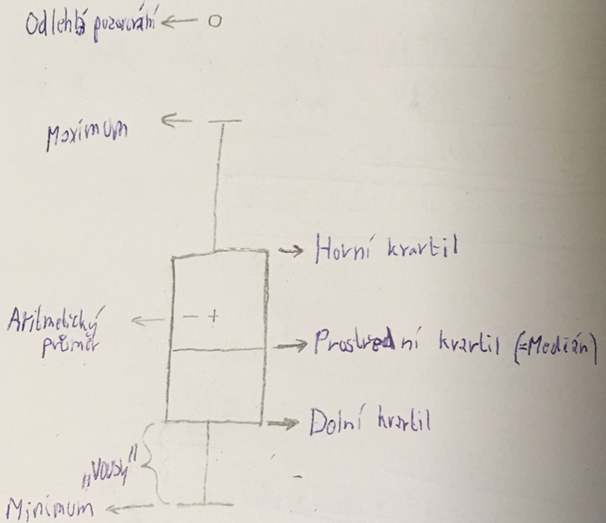 Odlehlá pozorování
Maximum
Horní kvartil
Aritmetický
průměr
Prostřední kvartil (=Medián)
Dolní kvartil
„Vousy"
Minimum